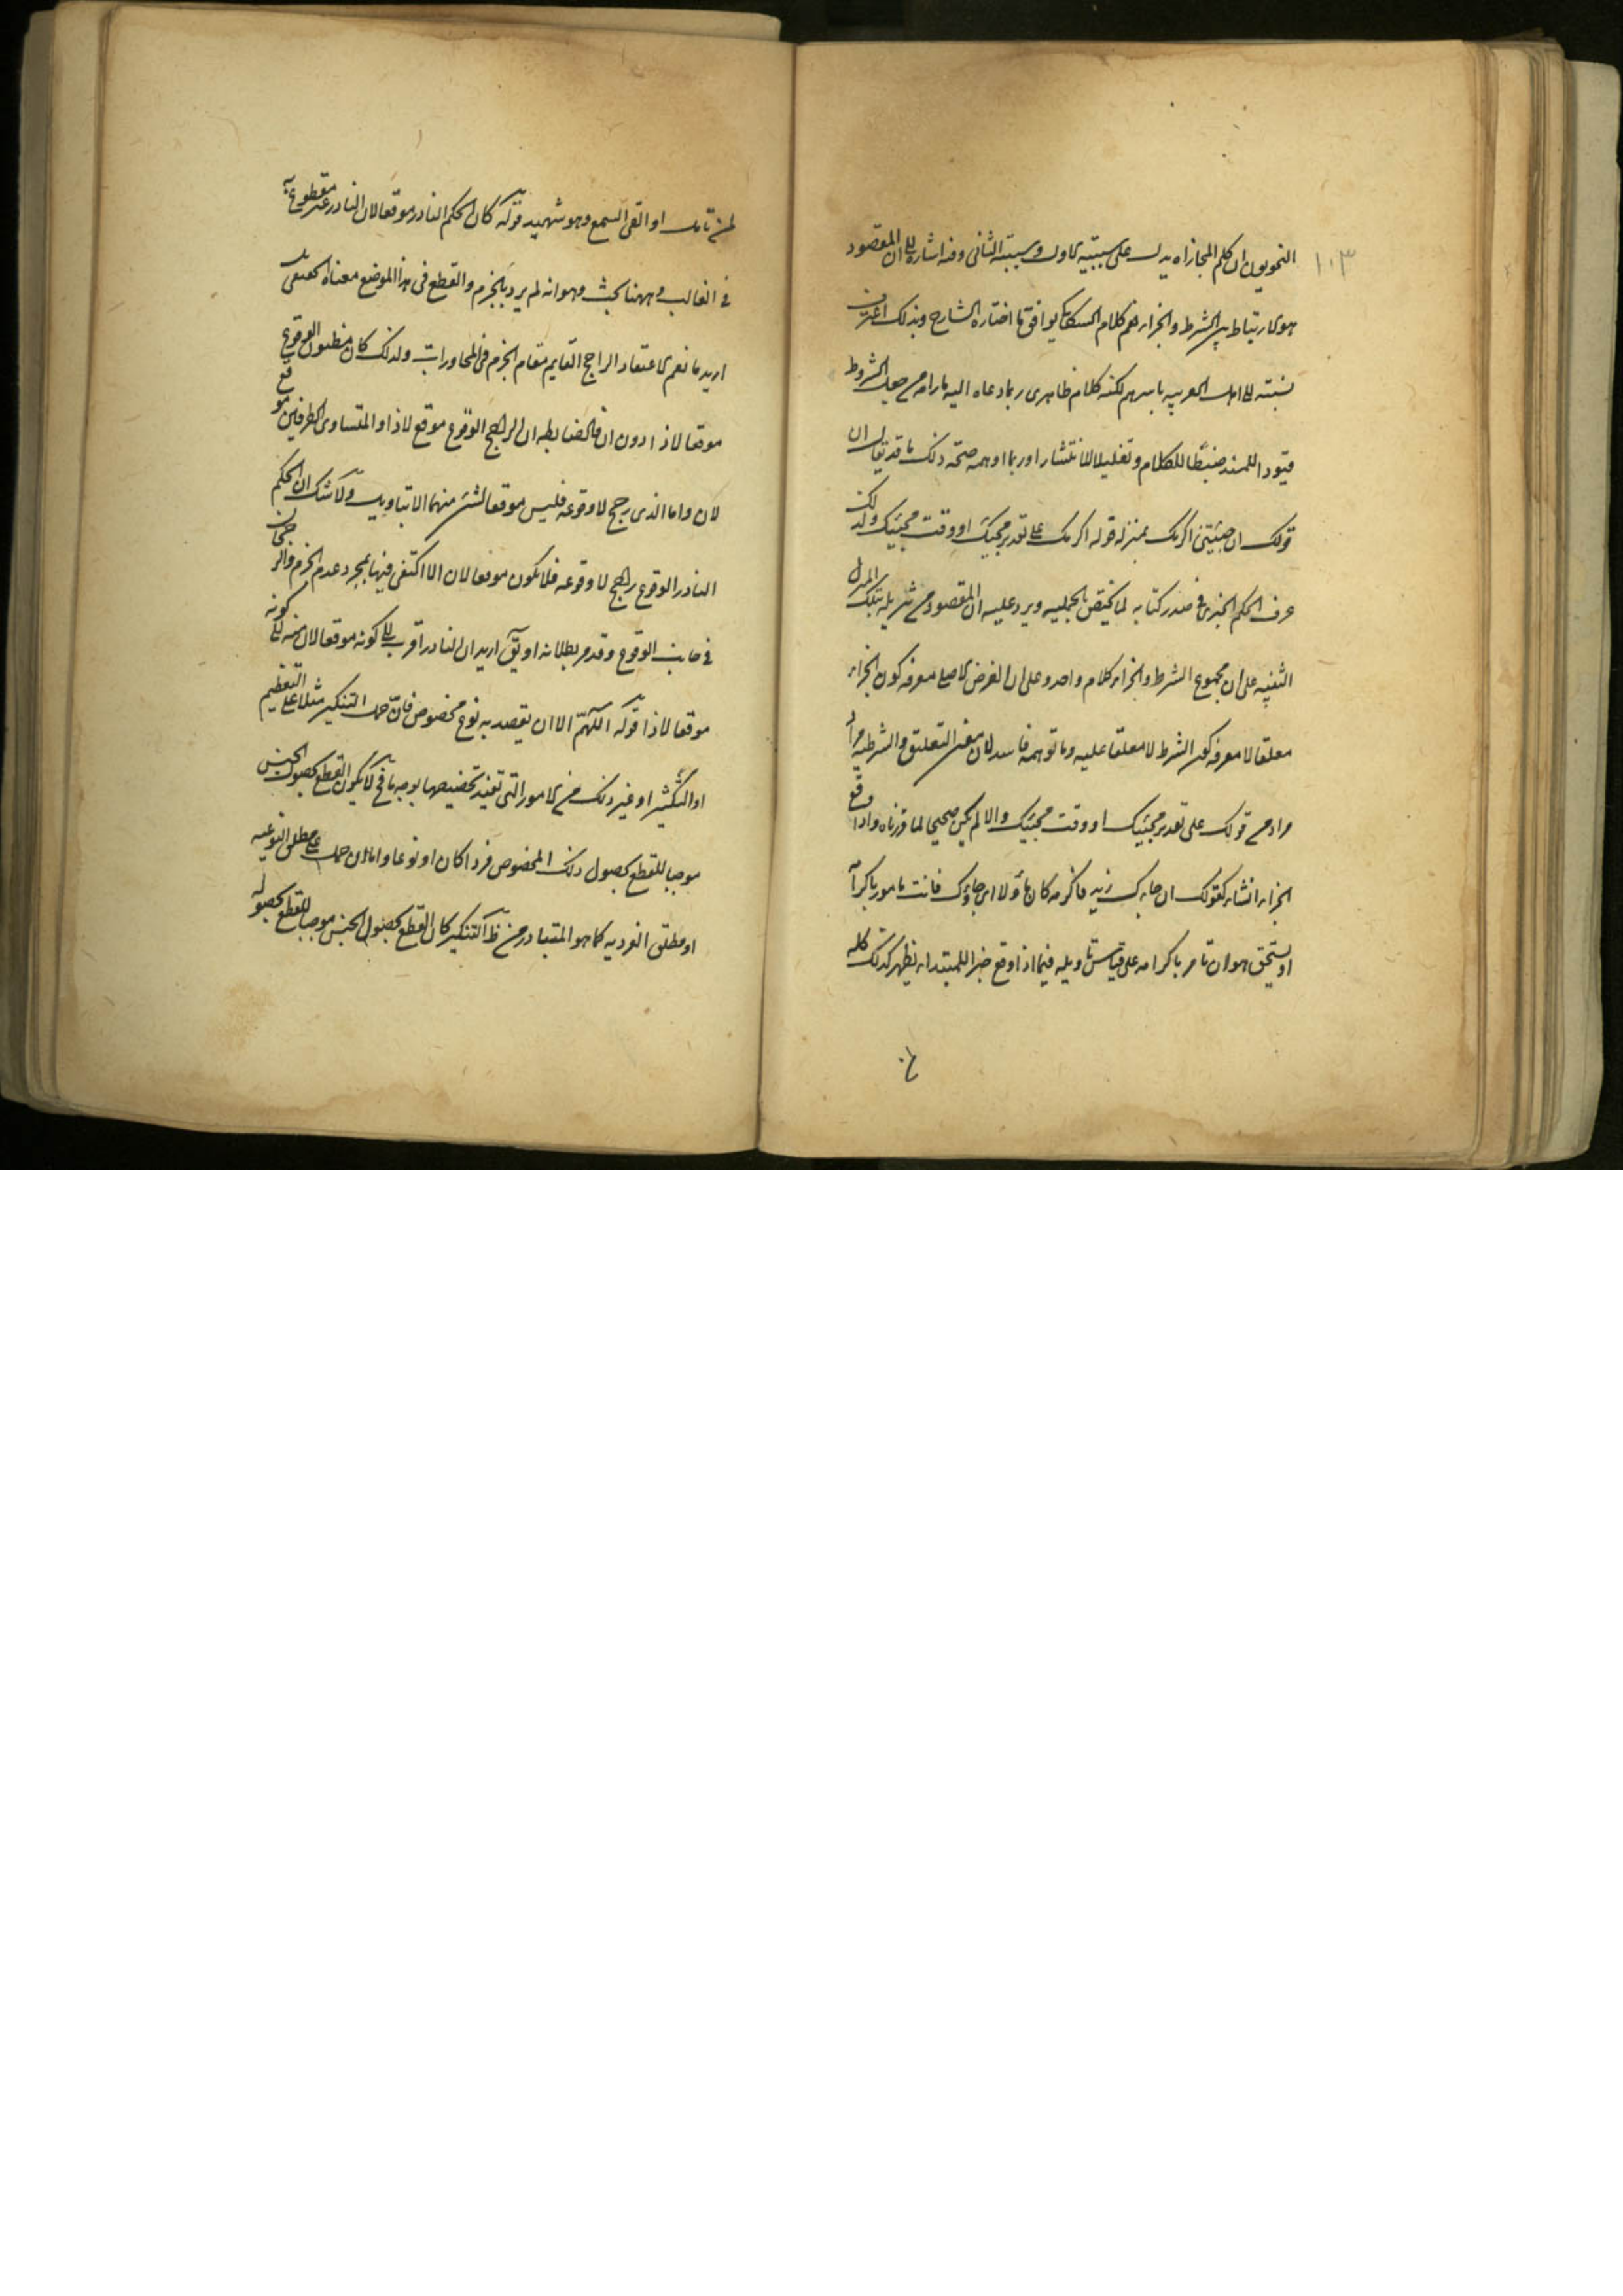 ١٠٣
النحويون ان كلم المجازاه يدل على سببيه الاول ومسببيه الثانى وفيه اشاره الى ان المقصود
هو الارتباط بين الشرط والجزاء نعم كلام السكاكى يوافق ما اختاره الشارح وبذلك اغتر
نسبته الى اهل العربيه باسرهم لكنه كلام ظاهرى ربما دعاه اليه ما رامه من جعل الشروط
قيودا للمسند ضبطا للكلام وتقليلا للانتشار وربما اوهمه صحه ذلك ما قد يقال ان
قولك ان جئتنى اكرمك بمنزله قوله اكرمك على تقدير مجيئك او وقت مجيئك ولذلك
عرف الحكم الخبرى فى صدر كتابه لما يختص بالجمليه ويرد عليه ان المقصود من تنزيله تلك المنزله
التنبيه على ان مجموع الشرط والجزاء كلام واحد وعلى ان الغرض الاصلى معرفه كون الجزاء
معلقا لا معرفه كون الشرط لا معلقا عليه وما توهمه فاسد لان معنى التعليق والشرطيه مراد
مرادة من قولك على تقدير مجيئك او وقت مجيئك والا لم يكن صحيحا لما قررناه واذا وقع
الجزاء انشاء كقولك ان جاءك زيد فاكرمه كان مأولا اى ان جاءك فانت مامور باكرامه
او يستحق هو ان تامر باكرامه على قياس تاويله فيما اذا وقع خبرا للمبتداء يظهر كذلك كله
لمن تامل او القى السمع وهو شهيد قوله كان الحكم النادر موقعا لان النادر غير مقطوع به
فى الغالب وههنا بحث وهو انه لم يرد بالجزم والقطع فى هذا الموضع معناه الحقيقى بل
اريد ما يعم الاعتقاد الراجح القايم مقام الجزم فى المحاورات ولذلك كان مظنون الوقوع
موقعا لاذا دون ان فالضابطه ان الراجح الوقوع موقع لاذا والمتساوى الطرفين موقع
لان واما الذى رجح لا وقوعه فليس موقعا لشئ منهما الا بتاويل ولا شك ان الحكم
النادر الوقوع راجح لا وقوعه فلا يكون موقعا لان الا اكتفى فيها بمجرد عدم الجزم والرجحان
فى جانب الوقوع وقد مر بطلانه او يق اريد ان النادر اقرب الى كونه موقعا لان منه الى كونه
موقعا لاذا قوله اللهم الا ان يقصد به نوع مخصوص فان حمل التنكير مثلا على التعظيم
او التكثير او غير ذلك من الامور التى تفيد تخصيصها بوجه ما فح لا يكون القطع بحصول الجنس
موجبا للقطع بحصول ذلك المخصوص فردا كان او نوعا واما ان حمل على مطلق النوعيه
او مطلق الفرديه كما هو المتبادر من ظ التنكير كان القطع بحصول الجنس موجبا للقطع بحصوله